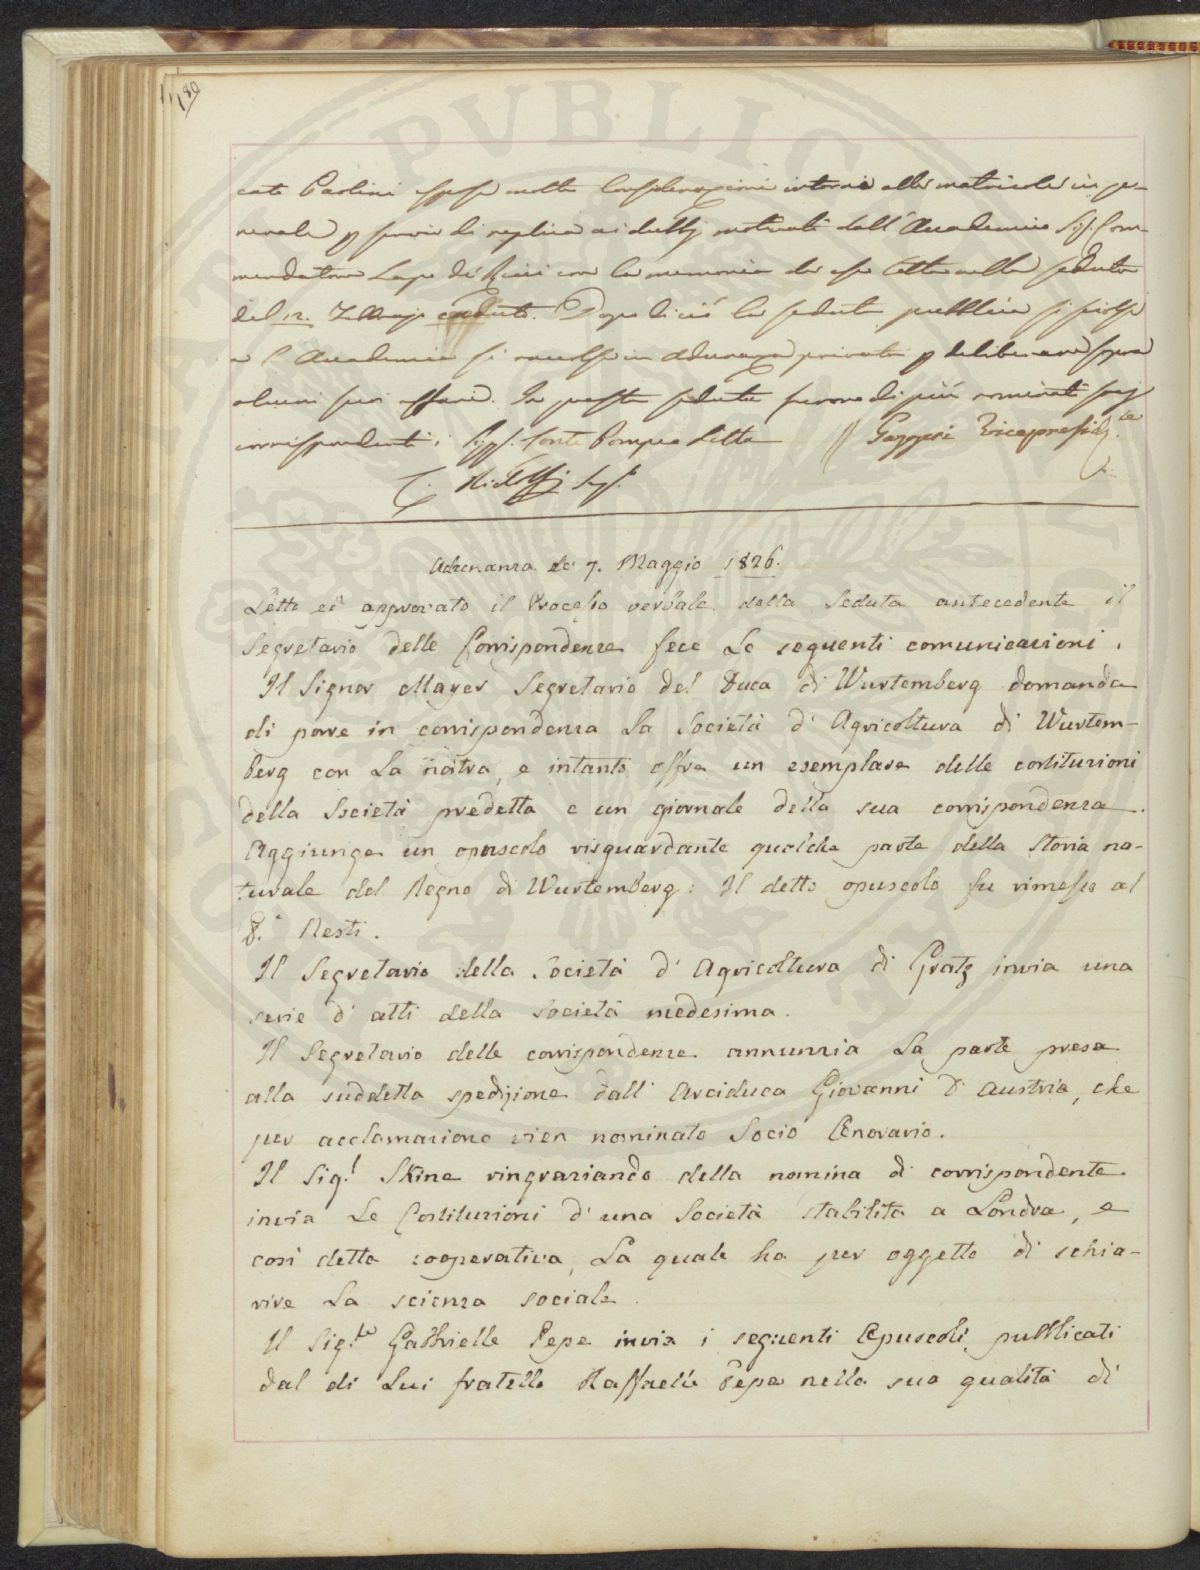 180
cato Paolini espose molte considerazioni intorno alle matricole in ge-
nerale p servir di replica ai dubbj motivati dall'Accademico Sig. Com-
mendatore Lapo de' Ricci con la memoria da esso letta nella seduta
del 12. Febbrajo caduto. Dopo di ciò la seduta pubblica si sciolse
e l'Accademia si raccolse in adunanza privata p deliberare sopra
alcuni suoi affari. In questa seduta furono di più nominati socj
corrispondenti i Sigg. Conte Pompeo Litta // Gazzeri Vicepresid.te
C. Ridolfi Seg.
Adunanza de' 7. Maggio 1826.
Letto ed approvato il Processo verbale della Seduta antecedente il
Segretario delle Corrispondenze fece Le seguenti comunicazioni.
Il Signor Mayer Segretario del Duca di Wurtemberg domanda
di porre in corrispondenza La Società d'Agricoltura di Wurtem-
berg con La nostra, e intanto offre un esemplare delle costituzioni
della Società predetta e un giornale della sua corrispondenza.
Aggiunge un opuscolo risguardante qualche parte della Storia na-
turale del Regno di Wurtemberg: Il detto opuscolo fu rimesso al
Nesti.
Il Segretario della Società d'Agricoltura di Gratz invia una
serie d'atti della Società medesima.
Il Segretario delle corrispondenze annunzia La parte presa
alla suddetta spedizione dall'Arciduca Giovanni d'Austria, che
per acclamazione vien nominato Socio Onorario.
Il Sig.r Skine ringraziando della nomina di corrispondente
invia Le Costituzioni d'una Società stabilita a Londra, e
così detta cooperativa, La quale ha per oggetto di schia-
rire La scienza sociale.
Il Sig.re Gabbrielle Pepe invia i seguenti Opuscoli pubblicati
dal di Lui fratello Raffaelle Pepe nella sua qualità di
PVBLIC